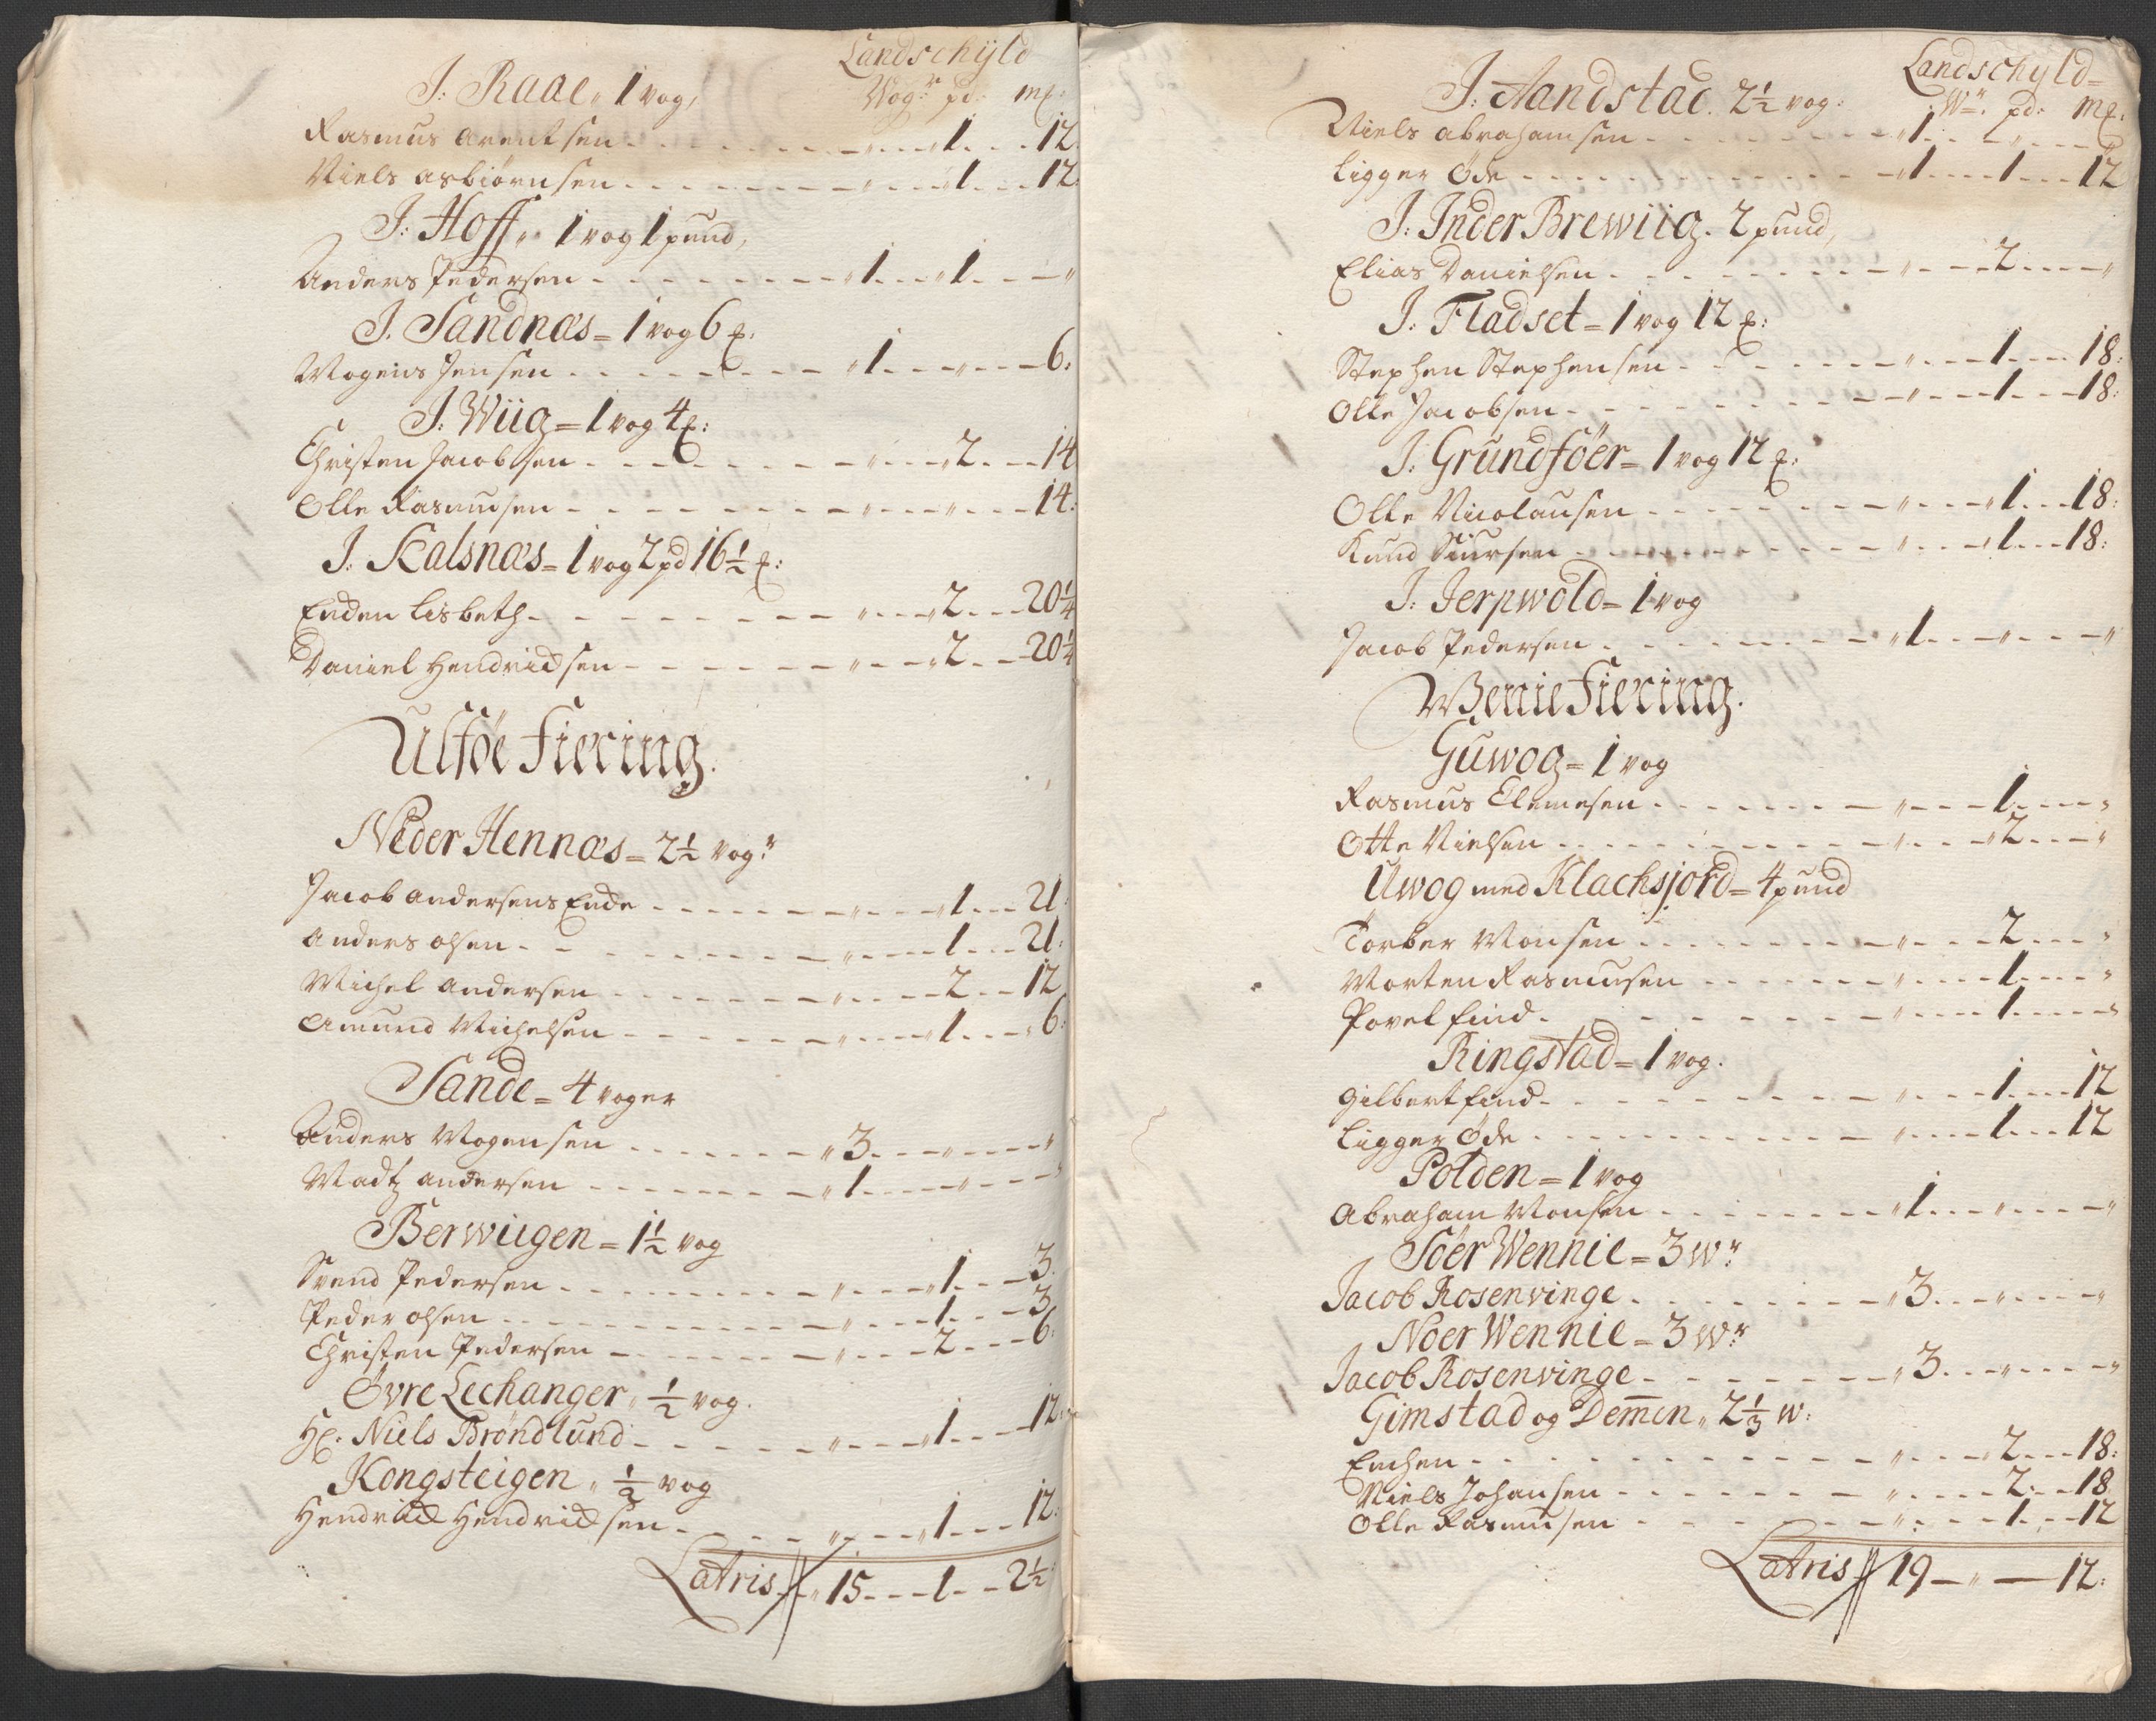 Landschÿld
J: Raae, 1 vog, Wog:r pd: m{ꝑ}:
Rasmus Arentsen - - - „ - - 1 - - 12:
Niels Asbiørnsen - - - „ - - 1 - - 12:
J: Hoff, 1 vog 1 pund,
Anders Pedersen - - - 1 - - 1 - - „
J: Sandnæs = 1 vog 6 {ꝑ}:
Mogens Jensen - - - 1 - - „ - - 6:
J: Wiig = 1 vog 4 {ꝑ}:
Christen Jacobsen - - - „ - - 2 - - 14
Olle Rasmusen - - - „ - - „ - - 14:
J: Kalsnæs = 1 vog 2 pd 16½ {ꝑ}:
Enchen Lisbeth - - - „ - - 2 - - 20¼
Daniel Hendrichsen - - - „ - - 2 - - 20¼
Ulföe Fiering.
Neder Hennæs = 2½ vog:r
Jacob Andersens Enche - - - „ - - 1 - - 21:
Anders Olsen - - - „ - - 1 - - 21:
Michel Andersen - - - „ - - 2 - - 12
Amund Michelsen - - - „ - - 1 - - 6:
Sande = 4 voger
Anders Mogensen - - - 3 - - „ - - „
Madtz Andersen - - - 1 - - „ - - „
Berwiigen = 1½ vog
Svend Pedersen - - - „ - - 1 - - 3.
Peder Olsen - - - „ - - 1 - - 3
Christen Pedersen - - - „ - - 2 - - 6:
Øvre Lechanger, ½ vog.
H{ꝑ}: Niels Bröndlund - - - „ - - 1 - - 12:
Kongsteigen, ½ vog
Hendrich Hendrichsen - - - „ - - 1 - - 12:
Latris - - 15 - - 1 - - 2½
Landschÿld =
J: Aandstad. 2½ vog: W:r pd: m{ꝑ}:
Niels Abrahamsen - - - 1 - - „ - - „
Ligger Øde - - - 1 - - 1 - - 12
J: Inder Brewiig. 2 pund,
Elias Danielsen - - - „ - - 2 - - „
J: Fladset = 1 vog 12 {ꝑ}:
Stephen Stephensen - - - „ - - 1 - - 18:
Olle Jacobsen - - - „ - - 1 - - 18:
J: Grundföer = 1 vog 12 {ꝑ}:
Olle Nicolausen - - - „ - - 1 - - 18:
Knud Siursen - - - „ - - 1 - - 18:
J: Jerpwold = 1 vog
Jacob Pedersen - - - 1 - - „ - - „
Wenie Fiering.
Guwog = 1 vog
Rasmus Clemesen - - - „ - - 1 - - „
Otte Nielsen - - - „ - - 2 - - „
Uwog med Klachsjord = 4 pund
Torber Monsen - - - „ - - 2 - - „
Morten Rasmusen - - - „ - - 1 - - „
Povel find - - - „ - - 1 - - „
Ringstad = 1 vog.
Gilbert find - - - „ - - 1 - - 12
Ligger Øde - - - „ - - 1 - - 12
Polden = 1 vog
Abraham Monsen - - - 1 - - „ - - „
Söer Wennie = 3 w:r
Jacob Rosenvinge - - - 3 - - „ - - „
Noer Wennie = 3 w:r
Jacob Rosenvinge - - - 3 - - „ - - „
Gimstad og Dem̅en, 2⅓ w:
Enchen - - - „ - - 2 - - 18:
Niels Johansen - - - „ - - 2 - - 18
Olle Rasmusen - - - „ - - 1 - - 12
Latris 19 - „ - 12: